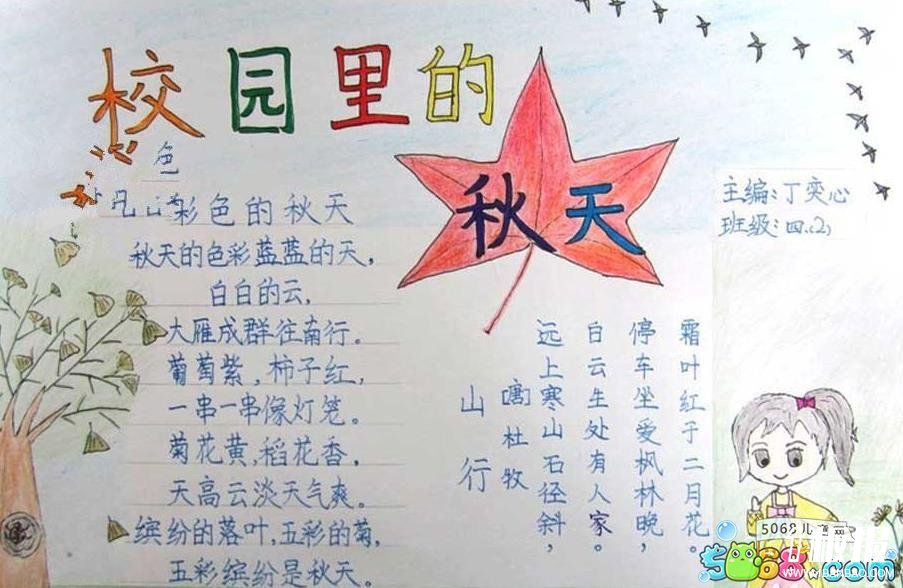 校园里的
秋天
主编:丁奕心
班级:四.(2)
色
彩色的秋天
秋天的色彩蓝蓝的天,
白白的云,
大雁成群往南行。
葡萄紫,柿子红,
一串一串像灯笼。
菊花黄,稻花香,
天高云淡天气爽。
缤纷的落叶,五彩的菊,
五彩缤纷是秋天。
山行
(唐)杜牧
远上寒山石径斜,
白云生处有人家。
停车坐爱枫林晚,
霜叶红于二月花。
5068儿
5068.com